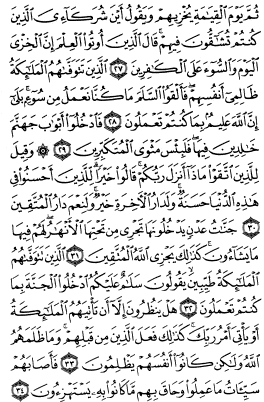 ثُمَّ يَوْمَ الْقِيَامَةِ يُخْزِيهِمْ وَيَقُولُ أَيْنَ شُرَكَاءِيَ الَّذِينَ
كُنتُمْ تُشَاقُّونَ فِيهِمْ قَالَ الَّذِينَ أُوتُوا الْعِلْمَ إِنَّ الْخِزْيَ
الْيَوْمَ وَالسُّوءَ عَلَى الْكَافِرِينَ ٢٧ الَّذِينَ تَتَوَفَّاهُمُ الْمَلَائِكَةُ
ظَالِمِي أَنفُسِهِمْ فَأَلْقَوُا السَّلَمَ مَا كُنَّا نَعْمَلُ مِن سُوءٍ بَلَى
إِنَّ اللَّهَ عَلِيمٌ بِمَا كُنتُمْ تَعْمَلُونَ ٢٨ فَادْخُلُوا أَبْوَابَ جَهَنَّمَ
خَالِدِينَ فِيهَا فَلَبِئْسَ مَثْوَى الْمُتَكَبِّرِينَ ٢٩ وَقِيلَ
لِلَّذِينَ اتَّقَوْا مَاذَا أَنزَلَ رَبُّكُمْ قَالُوا خَيْرًا لِّلَّذِينَ أَحْسَنُوا فِي
هَذِهِ الدُّنْيَا حَسَنَةٌ وَلَدَارُ الْآخِرَةِ خَيْرٌ وَلَنِعْمَ دَارُ الْمُتَّقِينَ
٣٠ جَنَّاتُ عَدْنٍ يَدْخُلُونَهَا تَجْرِي مِن تَحْتِهَا الْأَنْهَارُ لَهُمْ فِيهَا
مَا يَشَاءُونَ كَذَلِكَ يَجْزِي اللَّهُ الْمُتَّقِينَ ٣١ الَّذِينَ تَتَوَفَّاهُمُ
الْمَلَائِكَةُ طَيِّبِينَ يَقُولُونَ سَلَامٌ عَلَيْكُمُ ادْخُلُوا الْجَنَّةَ بِمَا
كُنتُمْ تَعْمَلُونَ ٣٢ هَلْ يَنظُرُونَ إِلَّا أَن تَأْتِيَهُمُ الْمَلَائِكَةُ
أَوْ يَأْتِيَ أَمْرُ رَبِّكَ كَذَلِكَ فَعَلَ الَّذِينَ مِن قَبْلِهِمْ وَمَا ظَلَمَهُمُ
اللَّهُ وَلَكِن كَانُوا أَنفُسَهُمْ يَظْلِمُونَ ٣٣ فَأَصَابَهُمْ
سَيِّئَاتُ مَا عَمِلُوا وَحَاقَ بِهِم مَّا كَانُوا بِهِ يَسْتَهْزِءُونَ ٣٤